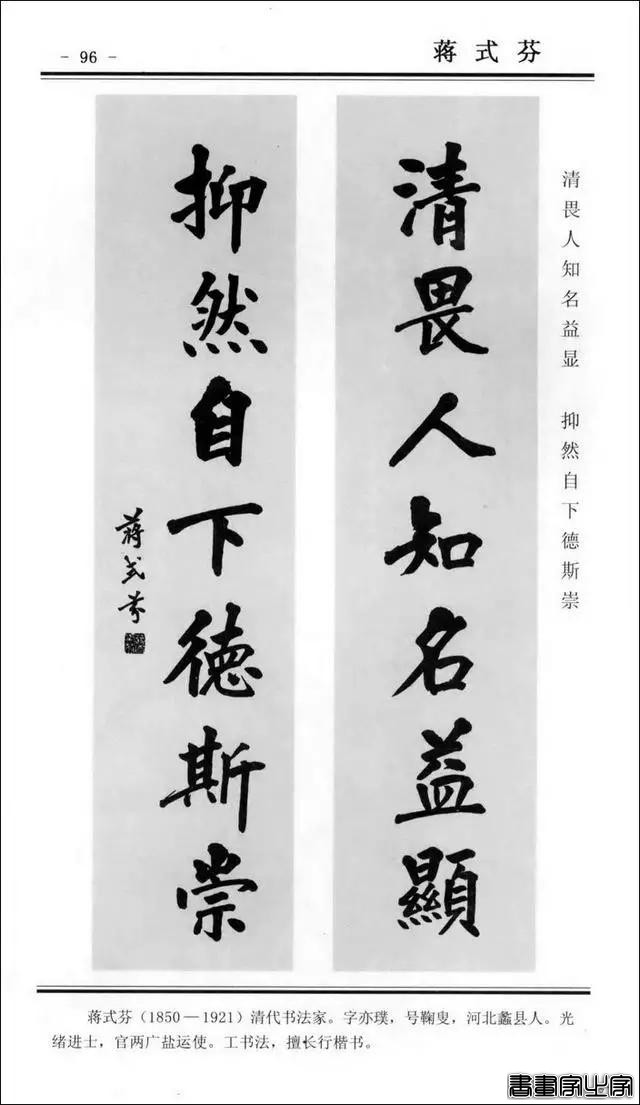 - 96 -
蒋式芬
清畏人知名益显 抑然自下德斯崇
清畏人知名益顯
抑然自下德斯崇
蔣式芬
蒋式芬(1850—1921)清代书法家。字亦璞，号鞠叟，河北蠡县人。光
绪进士，官两广盐运使。工书法，擅长行楷书。